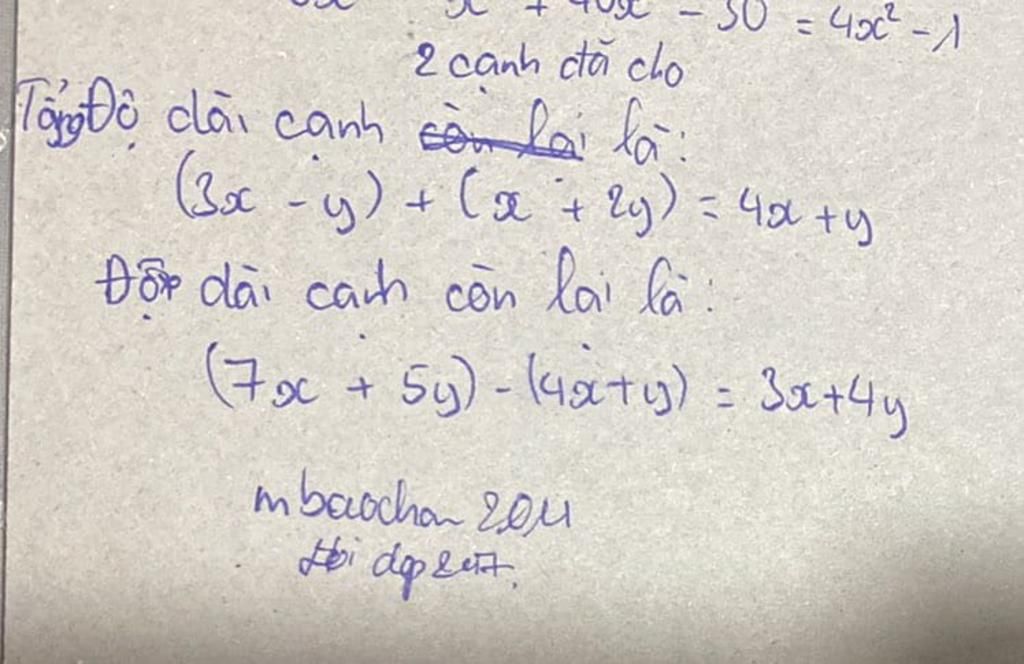 x² + 40x - 30 = 4x² - 1
2 cạnh đã cho
Tổng Độ dài cạnh còn lại là:
(3x - y) + (x + 2y) = 4x + y
Độ dài cạnh còn lại là:
(7x + 5y) - (4x + y) = 3x + 4y
mbaochan 2011